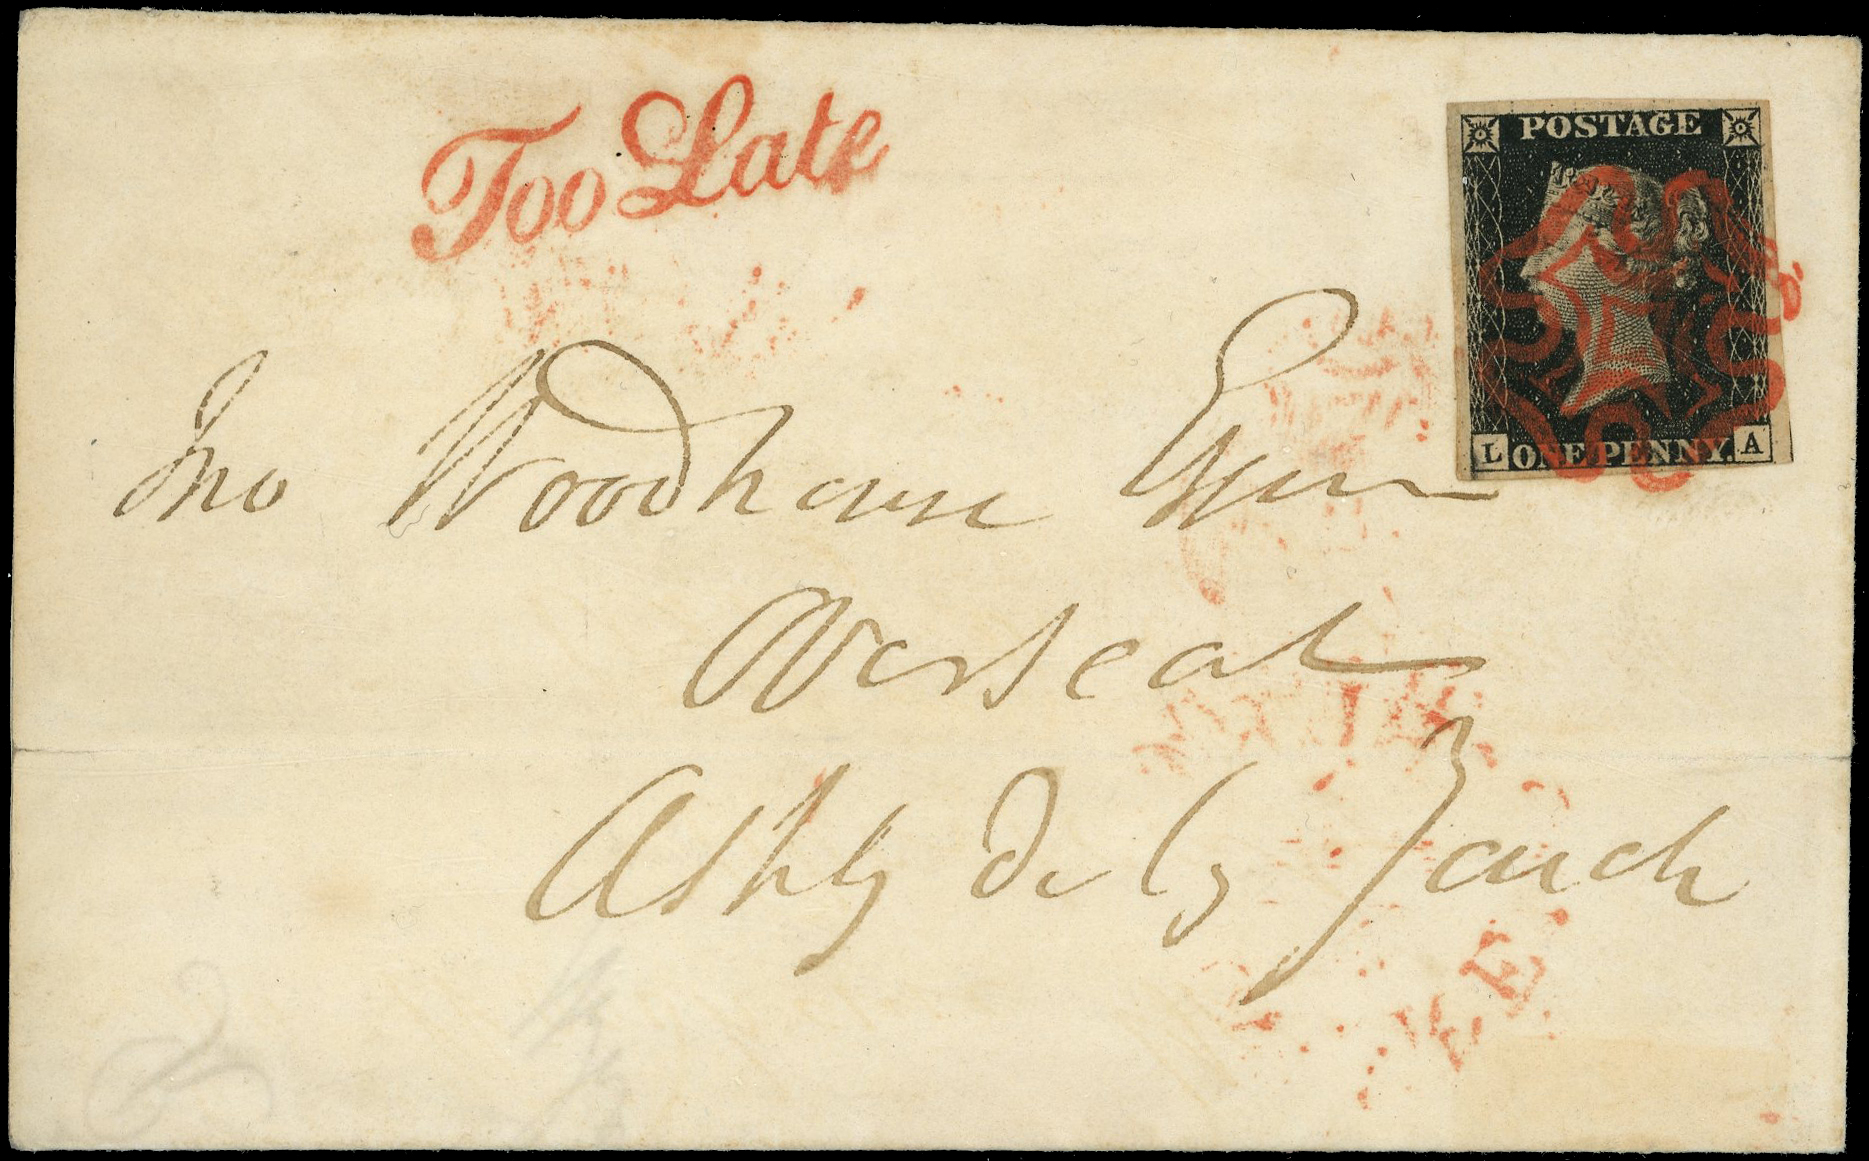 Too Late
POSTAGE
L ONE PENNY. A
Jno Woodhouse Esqr
Overseal
Ashby de la Zouch